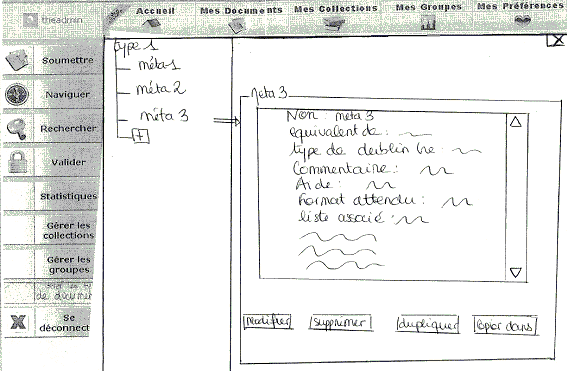 theadmin
Accueil
Mes Documents
Mes Collections
Mes Groupes
Mes Préférences
Soumettre
Naviguer
Rechercher
Valider
Statistiques
Gérer les
collections
Gérer les
groupes
de documen
Se
déconnect
X
type 1
méta 1
méta 2
méta 3
+
meta 3
Nom : meta 3
equivalent de :
type de dublin core :
Commentaire :
Aide :
Format attendu :
liste associé :
modifier
supprimer
dupliquer
copier dans